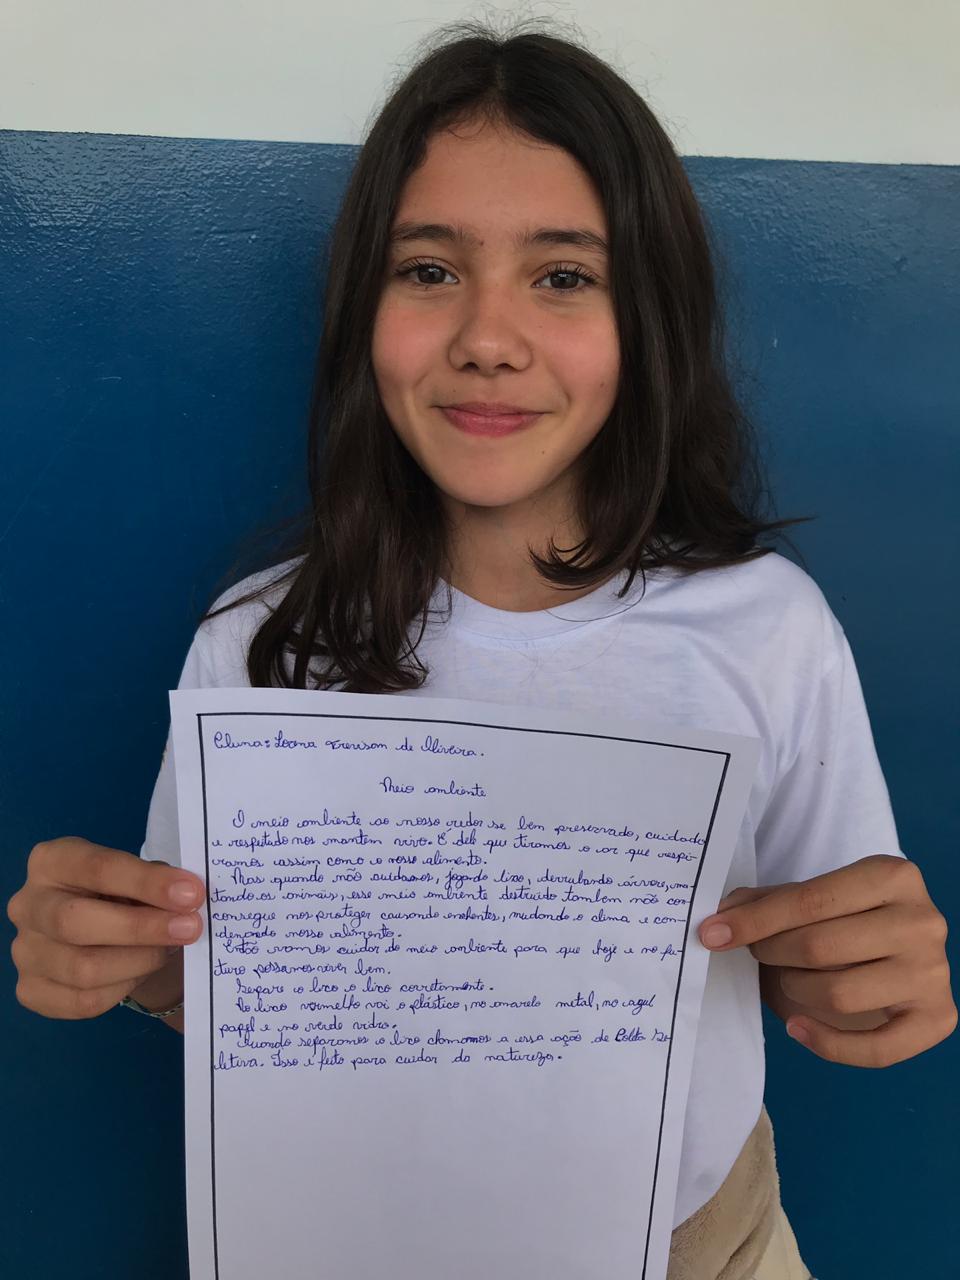 Aluna: Lorena Trevisam de Oliveira.
Meio ambiente
O meio ambiente ao nosso redor se bem preservado, cuidado
e respeitado nos mantem vivo. É dele que tiramos o ar que respi-
ramos assim como o nosso alimento.
Mas quando não cuidamos, jogando lixo, derrubando árvore, ma-
tando os animais, esse meio ambiente destruido tambem não con-
consegue nos proteger causando enchentes, mudando o clima e con-
denando nosso alimento.
Então vamos cuidar do meio ambiente para que hoje e no fu-
turo possamos viver bem.
Separe o lixo o lixo corretamente.
No lixo vermelho vai o plástico, no amarelo metal, no azul
papel e no verde vidro.
Quando separamos o lixo chamamos a essa ação de Coleta Se-
letiva. Isso é feito para cuidar da natureza.